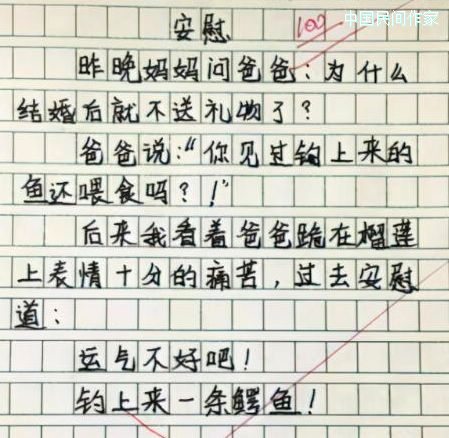 中国民间作家
安慰 100
昨晚妈妈问爸爸：为什么
结婚后就不送礼物了？
爸爸说：“你见过钩上来的
鱼还喂食吗？！”
后来我看着爸爸跪在榴莲
上表情十分的痛苦，过去安慰
道：
运气不好吧！
钓上来一条鳄鱼！